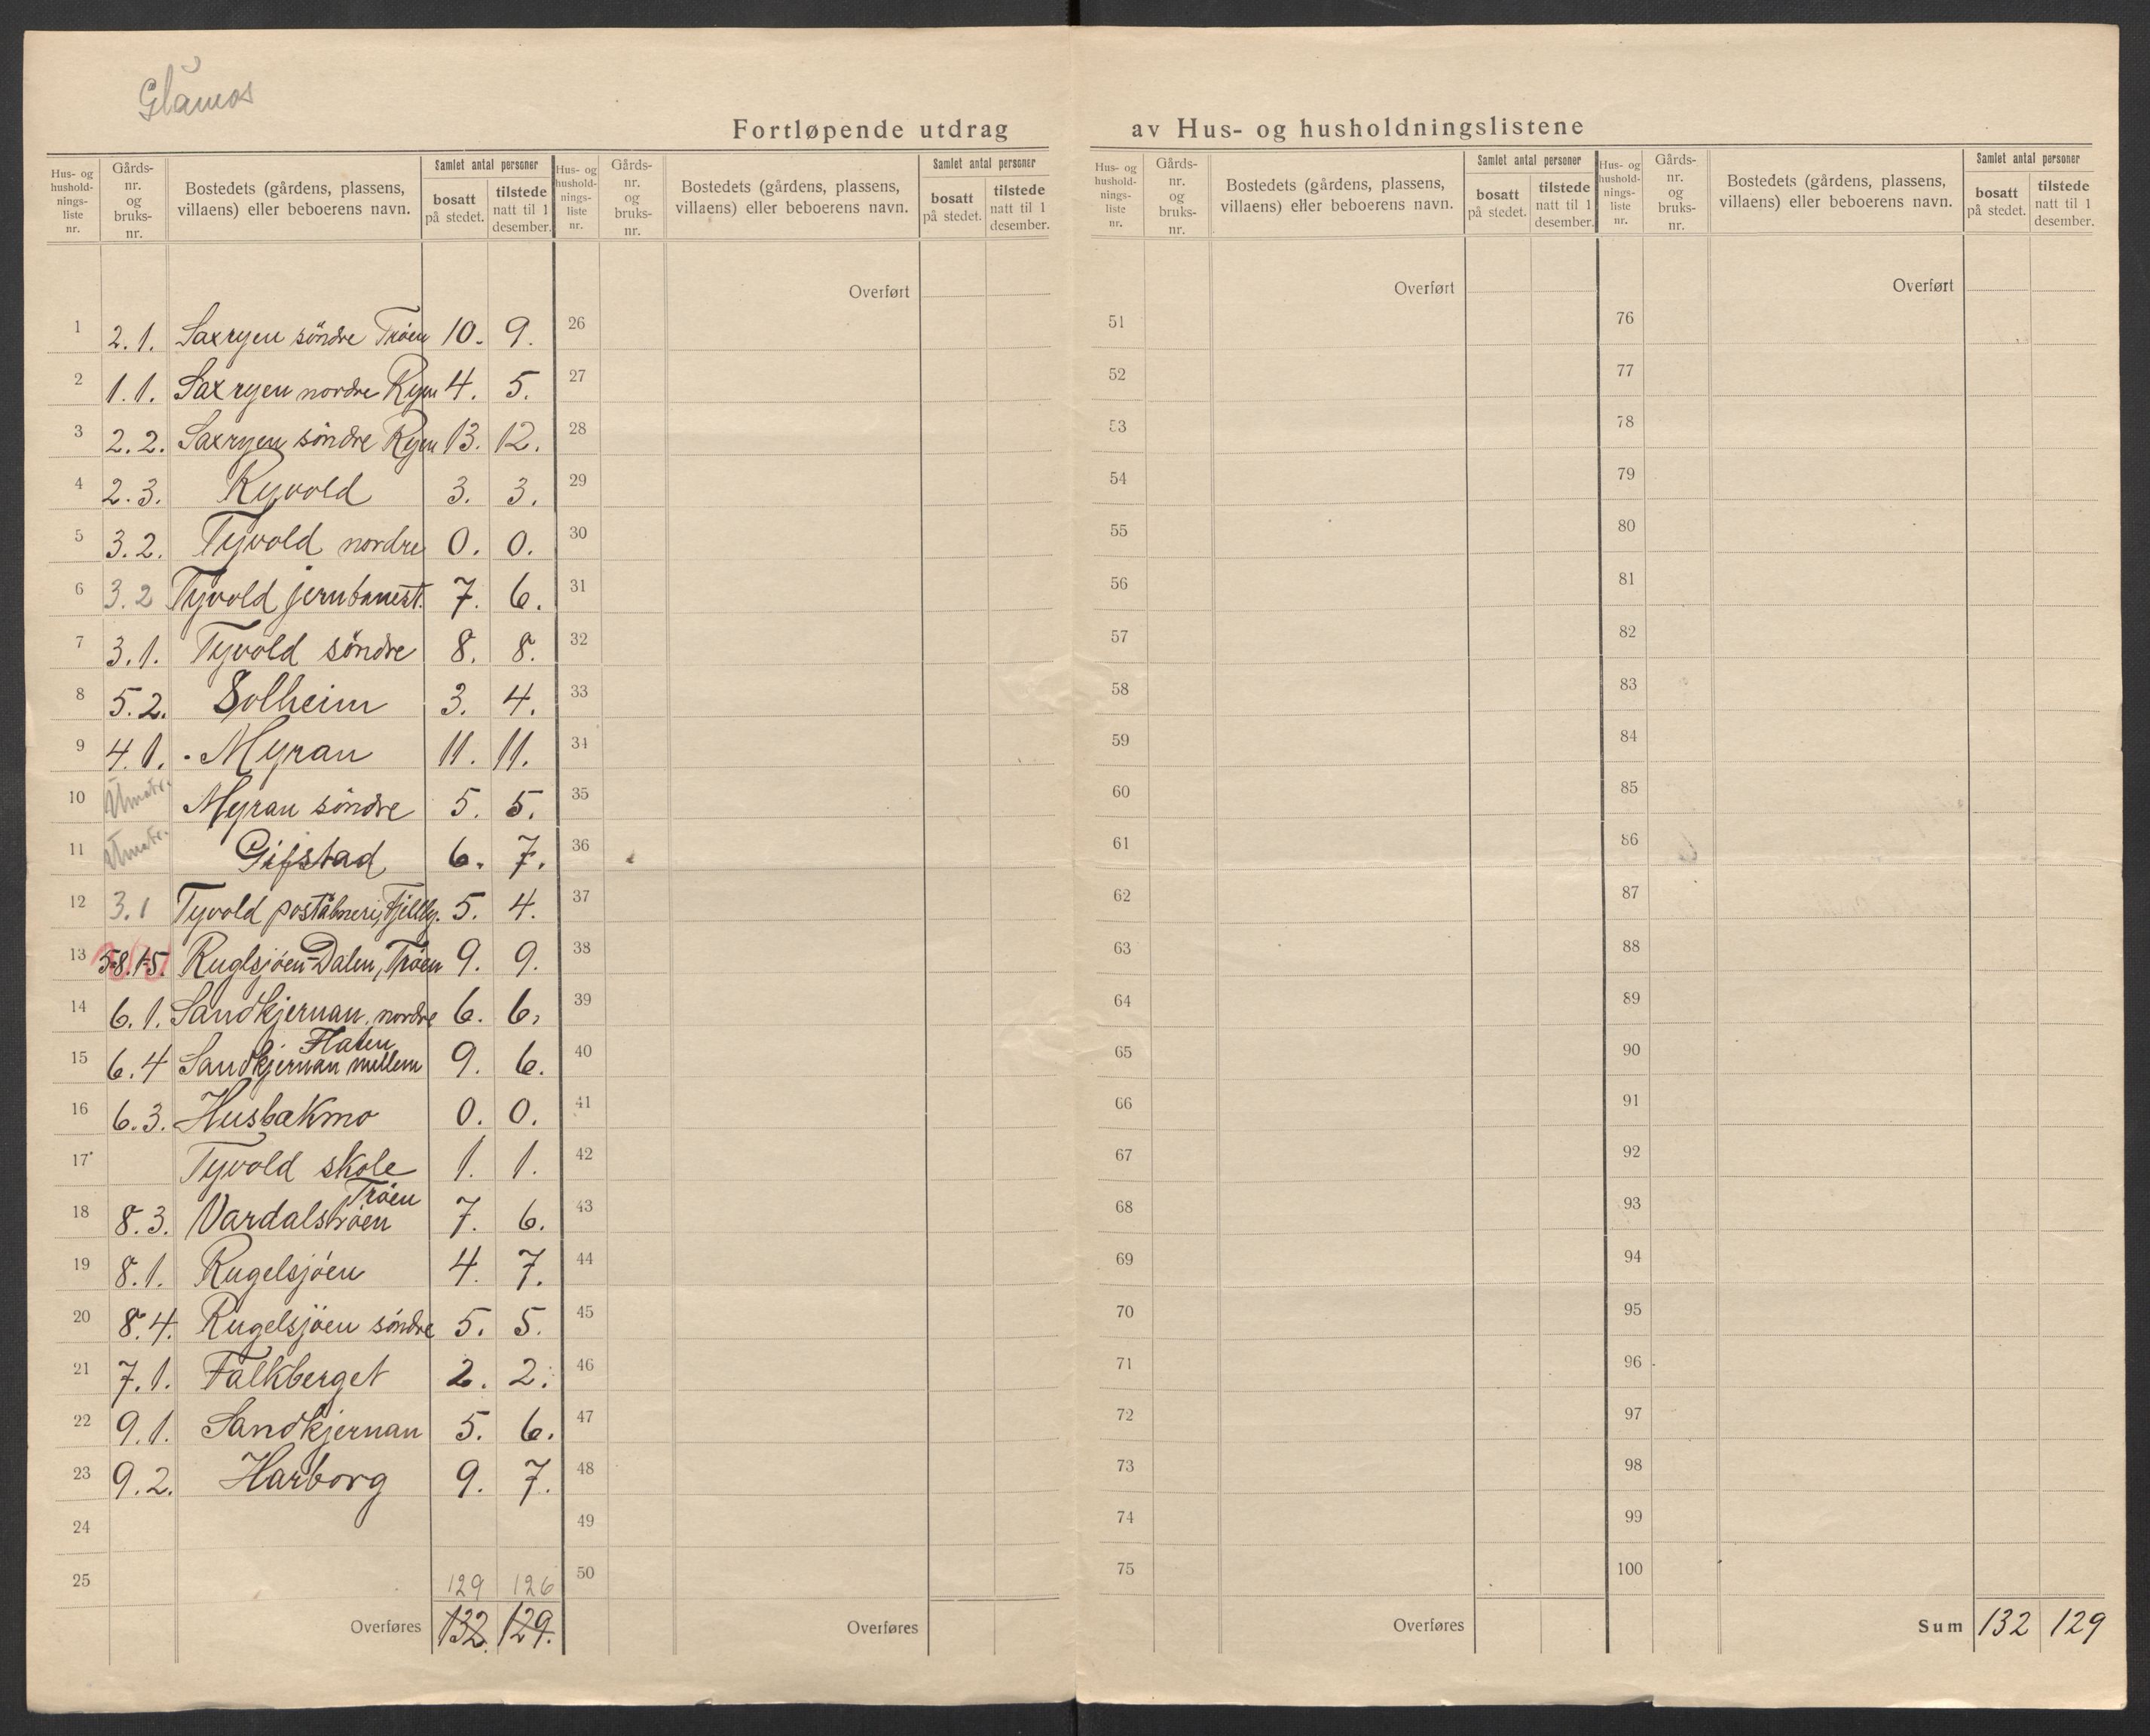 Glåmos
Fortløpende utdrag av Hus- og husholdningslistene
Hus- og hushold- nings- liste nr. Gårds- nr. og bruks- nr. Bostedets (gårdens, plassens, villaens) eller beboerens navn. Samlet antal personer bosatt på stedet. tilstede natt til 1 desember.
Hus- og hushold- nings- liste nr. Gårds- nr. og bruks- nr. Bostedets (gårdens, plassens, villaens) eller beboerens navn. Samlet antal personer bosatt på stedet. tilstede natt til 1 desember.
Hus- og hushold- nings- liste nr. Gårds- nr. og bruks- nr. Bostedets (gårdens, plassens, villaens) eller beboerens navn. Samlet antal personer bosatt på stedet. tilstede natt til 1 desember.
Hus- og hushold- nings- liste nr. Gårds- nr. og bruks- nr. Bostedets (gårdens, plassens, villaens) eller beboerens navn. Samlet antal personer bosatt på stedet. tilstede natt til 1 desember.
Overført Overført Overført
1 2.1. Saxryen söndre Tröen 10. 9. 26 51 76
2 1.1. Saxryen nordre Ryen 4. 5. 27 52 77
3 2.2. Saxryen söndre Ryen 13. 12. 28 53 78
4 2.3. Ryvold 3. 3. 29 54 79
5 3.2. Tyvold nordre 0. 0. 30 55 80
6 3.2 Tyvold jernbanest. 7. 6. 31 56 81
7 3.1. Tyvold söndre 8. 8. 32 57 82
8 5.2. Solheim 3. 4. 33 58 83
9 4.1. Myran 11. 11. 34 59 84
10 Umatr. Myran söndre 5. 5. 35 60 85
11 Umatr. Gifstad 6. 7. 36 61 86
12 3.1 Tyvold poståbneri, Fjellly. 5. 4. 37 62 87
13 Ruglsjöen-Dalen, Tröen 9. 9. 38 63 88
14 6.1. Sandkjernan nordre 6. 6. 39 64 89
Flaten
15 6.4 Sandkjernan mellem 9. 6. 40 65 90
16 6.3. Husbakmo 0. 0. 41 66 91
17 Tyvold skole 1. 1. 42 67 92
Tröen
18 8.3. Vardalströen 7. 6. 43 68 93
19 8.1. Rugelsjöen 4. 7. 44 69 94
20 8.4. Rugelsjöen söndre 5. 5. 45 70 95
21 7.1. Falkberget 2. 2. 46 71 96
22 9.1. Sandkjernan 5. 6. 47 72 97
23 9.2. Harborg 9. 7. 48 73 98
24 49 74 99
25 129 126 50 75 100
Overføres 132. 129. Overføres Overføres Sum 132 129